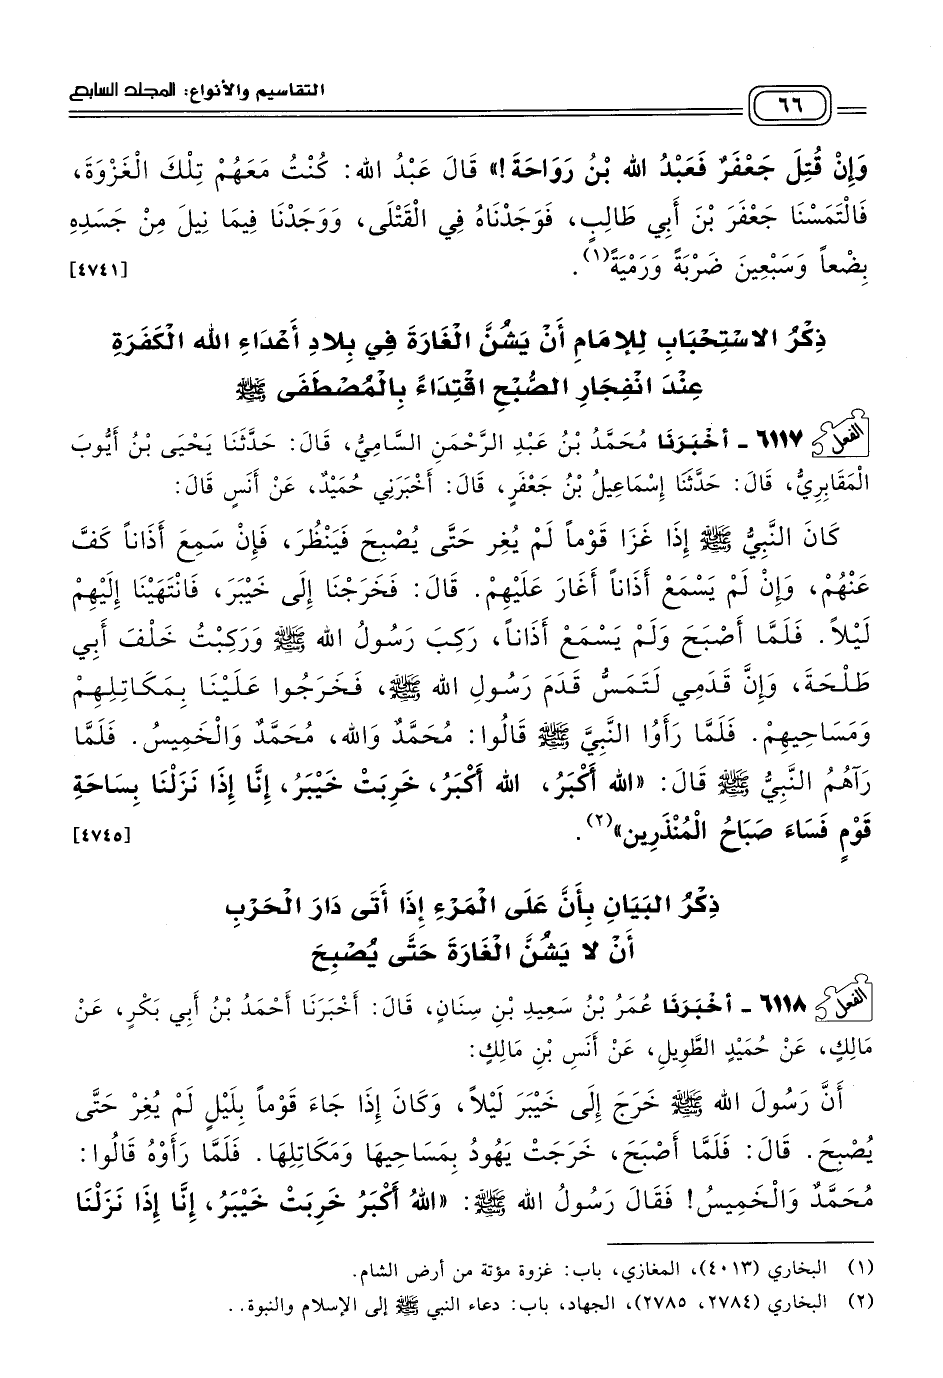 التقاسيم والأنواع: المجلد السابع
٦٦
وَإِنْ قُتِلَ جَعْفَرٌ فَعَبْدُ الله بْنُ رَوَاحَةَ!» قَالَ عَبْدُ الله: كُنْتُ مَعَهُمْ تِلْكَ الْغَزْوَةَ،
فَالْتَمَسْنَا جَعْفَرَ بْنَ أَبِي طَالِبٍ، فَوَجَدْنَاهُ فِي الْقَتْلَى، وَوَجَدْنَا فِيمَا نِيلَ مِنْ جَسَدِهِ
بِضْعاً وَسَبْعِينَ ضَرْبَةً وَرَمْيَةً(١). [٤٧٤١]
ذِكْرُ الاسْتِحْبَابِ لِلإمَامِ أَنْ يَشُنَّ الْغَارَةَ فِي بِلادِ أَعْدَاءِ الله الْكَفَرَةِ
عِنْدَ انْفِجَارِ الصُّبْحِ اقْتِدَاءً بِالْمُصْطَفَى ﷺ
الفعل ٦١١٧ - أخْبَرَنَا مُحَمَّدُ بْنُ عَبْدِ الرَّحْمَنِ السَّامِيُّ، قَالَ: حَدَّثَنَا يَحْيَى بْنُ أَيُّوبَ
الْمَقَابِرِيُّ، قَالَ: حَدَّثَنَا إِسْمَاعِيلُ بْنُ جَعْفَرٍ، قَالَ: أَخْبَرَنِي حُمَيْدٌ، عَنْ أَنَسٍ قَالَ:
كَانَ النَّبِيُّ ﷺ إِذَا غَزَا قَوْماً لَمْ يُغِرِ حَتَّى يُصْبِحَ فَيَنْظُرَ، فَإِنْ سَمِعَ أَذَاناً كَفَّ
عَنْهُمْ، وَإِنْ لَمْ يَسْمَعْ أَذَاناً أَغَارَ عَلَيْهِمْ. قَالَ: فَخَرَجْنَا إِلَى خَيْبَرَ، فَانْتَهَيْنَا إِلَيْهِمْ
لَيْلاً. فَلَمَّا أَصْبَحَ وَلَمْ يَسْمَعْ أَذَاناً، رَكِبَ رَسُولُ الله ﷺ وَرَكِبْتُ خَلْفَ أَبِي
طَلْحَةَ، وَإِنَّ قَدَمِي لَتَمَسُّ قَدَمَ رَسُولِ الله ﷺ، فَخَرَجُوا عَلَيْنَا بِمَكَاتِلِهِمْ
وَمَسَاحِيهِمْ. فَلَمَّا رَأَوُا النَّبِيَّ ﷺ قَالُوا: مُحَمَّدٌ وَالله، مُحَمَّدٌ وَالْخَمِيسُ. فَلَمَّا
رَآهُمُ النَّبِيُّ ﷺ قَالَ: «الله أَكْبَرُ، الله أَكْبَرُ، خَرِبَتْ خَيْبَرُ، إِنَّا إِذَا نَزَلْنَا بِسَاحَةِ
قَوْمٍ فَسَاءَ صَبَاحُ الْمُنْذَرِين»(٢). [٤٧٤٥]
ذِكْرُ البَيَانِ بِأَنَّ عَلَى الْمَرْءِ إِذَا أَتَى دَارَ الْحَرْبِ
أَنْ لا يَشُنَّ الْغَارَةَ حَتَّى يُصْبِحَ
الفعل ٦١١٨ - أخْبَرَنَا عُمَرُ بْنُ سَعِيدِ بْنِ سِنَانٍ، قَالَ: أَخْبَرَنَا أَحْمَدُ بْنُ أَبِي بَكْرٍ، عَنْ
مَالِكٍ، عَنْ حُمَيْدٍ الطَّوِيلِ، عَنْ أَنَسِ بْنِ مَالِكٍ:
أَنَّ رَسُولَ الله ﷺ خَرَجَ إِلَى خَيْبَرَ لَيْلاً، وَكَانَ إِذَا جَاءَ قَوْماً بِلَيْلٍ لَمْ يُغِرْ حَتَّى
يُصْبِحَ. قَالَ: فَلَمَّا أَصْبَحَ، خَرَجَتْ يَهُودُ بِمَسَاحِيهَا وَمَكَاتِلِهَا. فَلَمَّا رَأَوْهُ قَالُوا:
مُحَمَّدٌ وَالْخَمِيسُ! فَقَالَ رَسُولُ الله ﷺ: «اللهُ أَكْبَرُ خَرِبَتْ خَيْبَرُ، إِنَّا إِذَا نَزَلْنَا
(١) البخاري (٤٠١٣)، المغازي، باب: غزوة مؤتة من أرض الشام.
(٢) البخاري (٢٧٨٤، ٢٧٨٥)، الجهاد، باب: دعاء النبي ﷺ إلى الإسلام والنبوة..